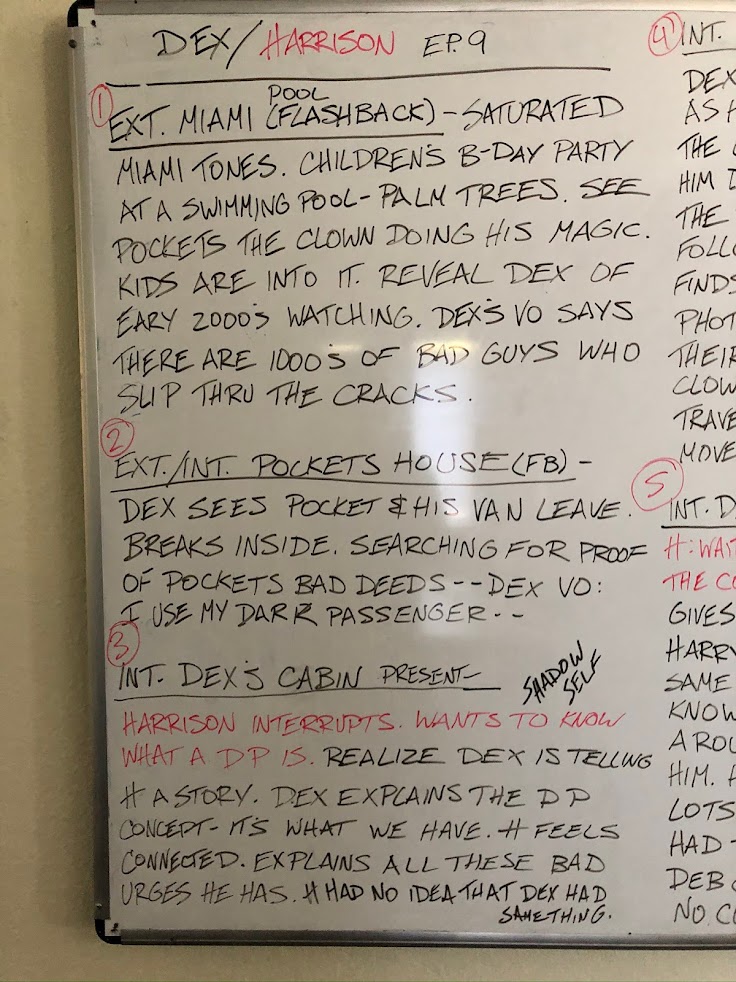 DEX/HARRISON EP. 9
①
POOL
EXT. MIAMI (FLASHBACK) - SATURATED
MIAMI TONES. CHILDREN'S B-DAY PARTY
AT A SWIMMING POOL - PALM TREES. SEE
POCKETS THE CLOWN DOING HIS MAGIC.
KIDS ARE INTO IT. REVEAL DEX OF
EARY 2000'S WATCHING. DEX'S VO SAYS
THERE ARE 1000'S OF BAD GUYS WHO
SLIP THRU THE CRACKS.
②
EXT./INT. POCKETS HOUSE (FB) -
DEX SEES POCKET & HIS VAN LEAVE.
BREAKS INSIDE. SEARCHING FOR PROOF
OF POCKETS BAD DEEDS -- DEX VO:
I USE MY DARK PASSENGER --
③
INT. DEX'S CABIN PRESENT -
SHADOW
SELF
HARRISON INTERRUPTS. WANTS TO KNOW
WHAT A DP IS. REALIZE DEX IS TELLING
H A STORY. DEX EXPLAINS THE DP
CONCEPT - IT'S WHAT WE HAVE. H FEELS
CONNECTED. EXPLAINS ALL THESE BAD
URGES HE HAS. H HAD NO IDEA THAT DEX HAD
SAMETHING.
④ INT.
DEX
AS H
THE
HIM D
THE
FOLLO
FINDS
PHOT
THEIR
CLOW
TRAVE
MOVE
⑤
INT. D
H: WAIT
THE CO
GIVES
HARRY
SAME
KNOW
AROU
HIM. 
LOTS
HAD -
DEB
NO CO